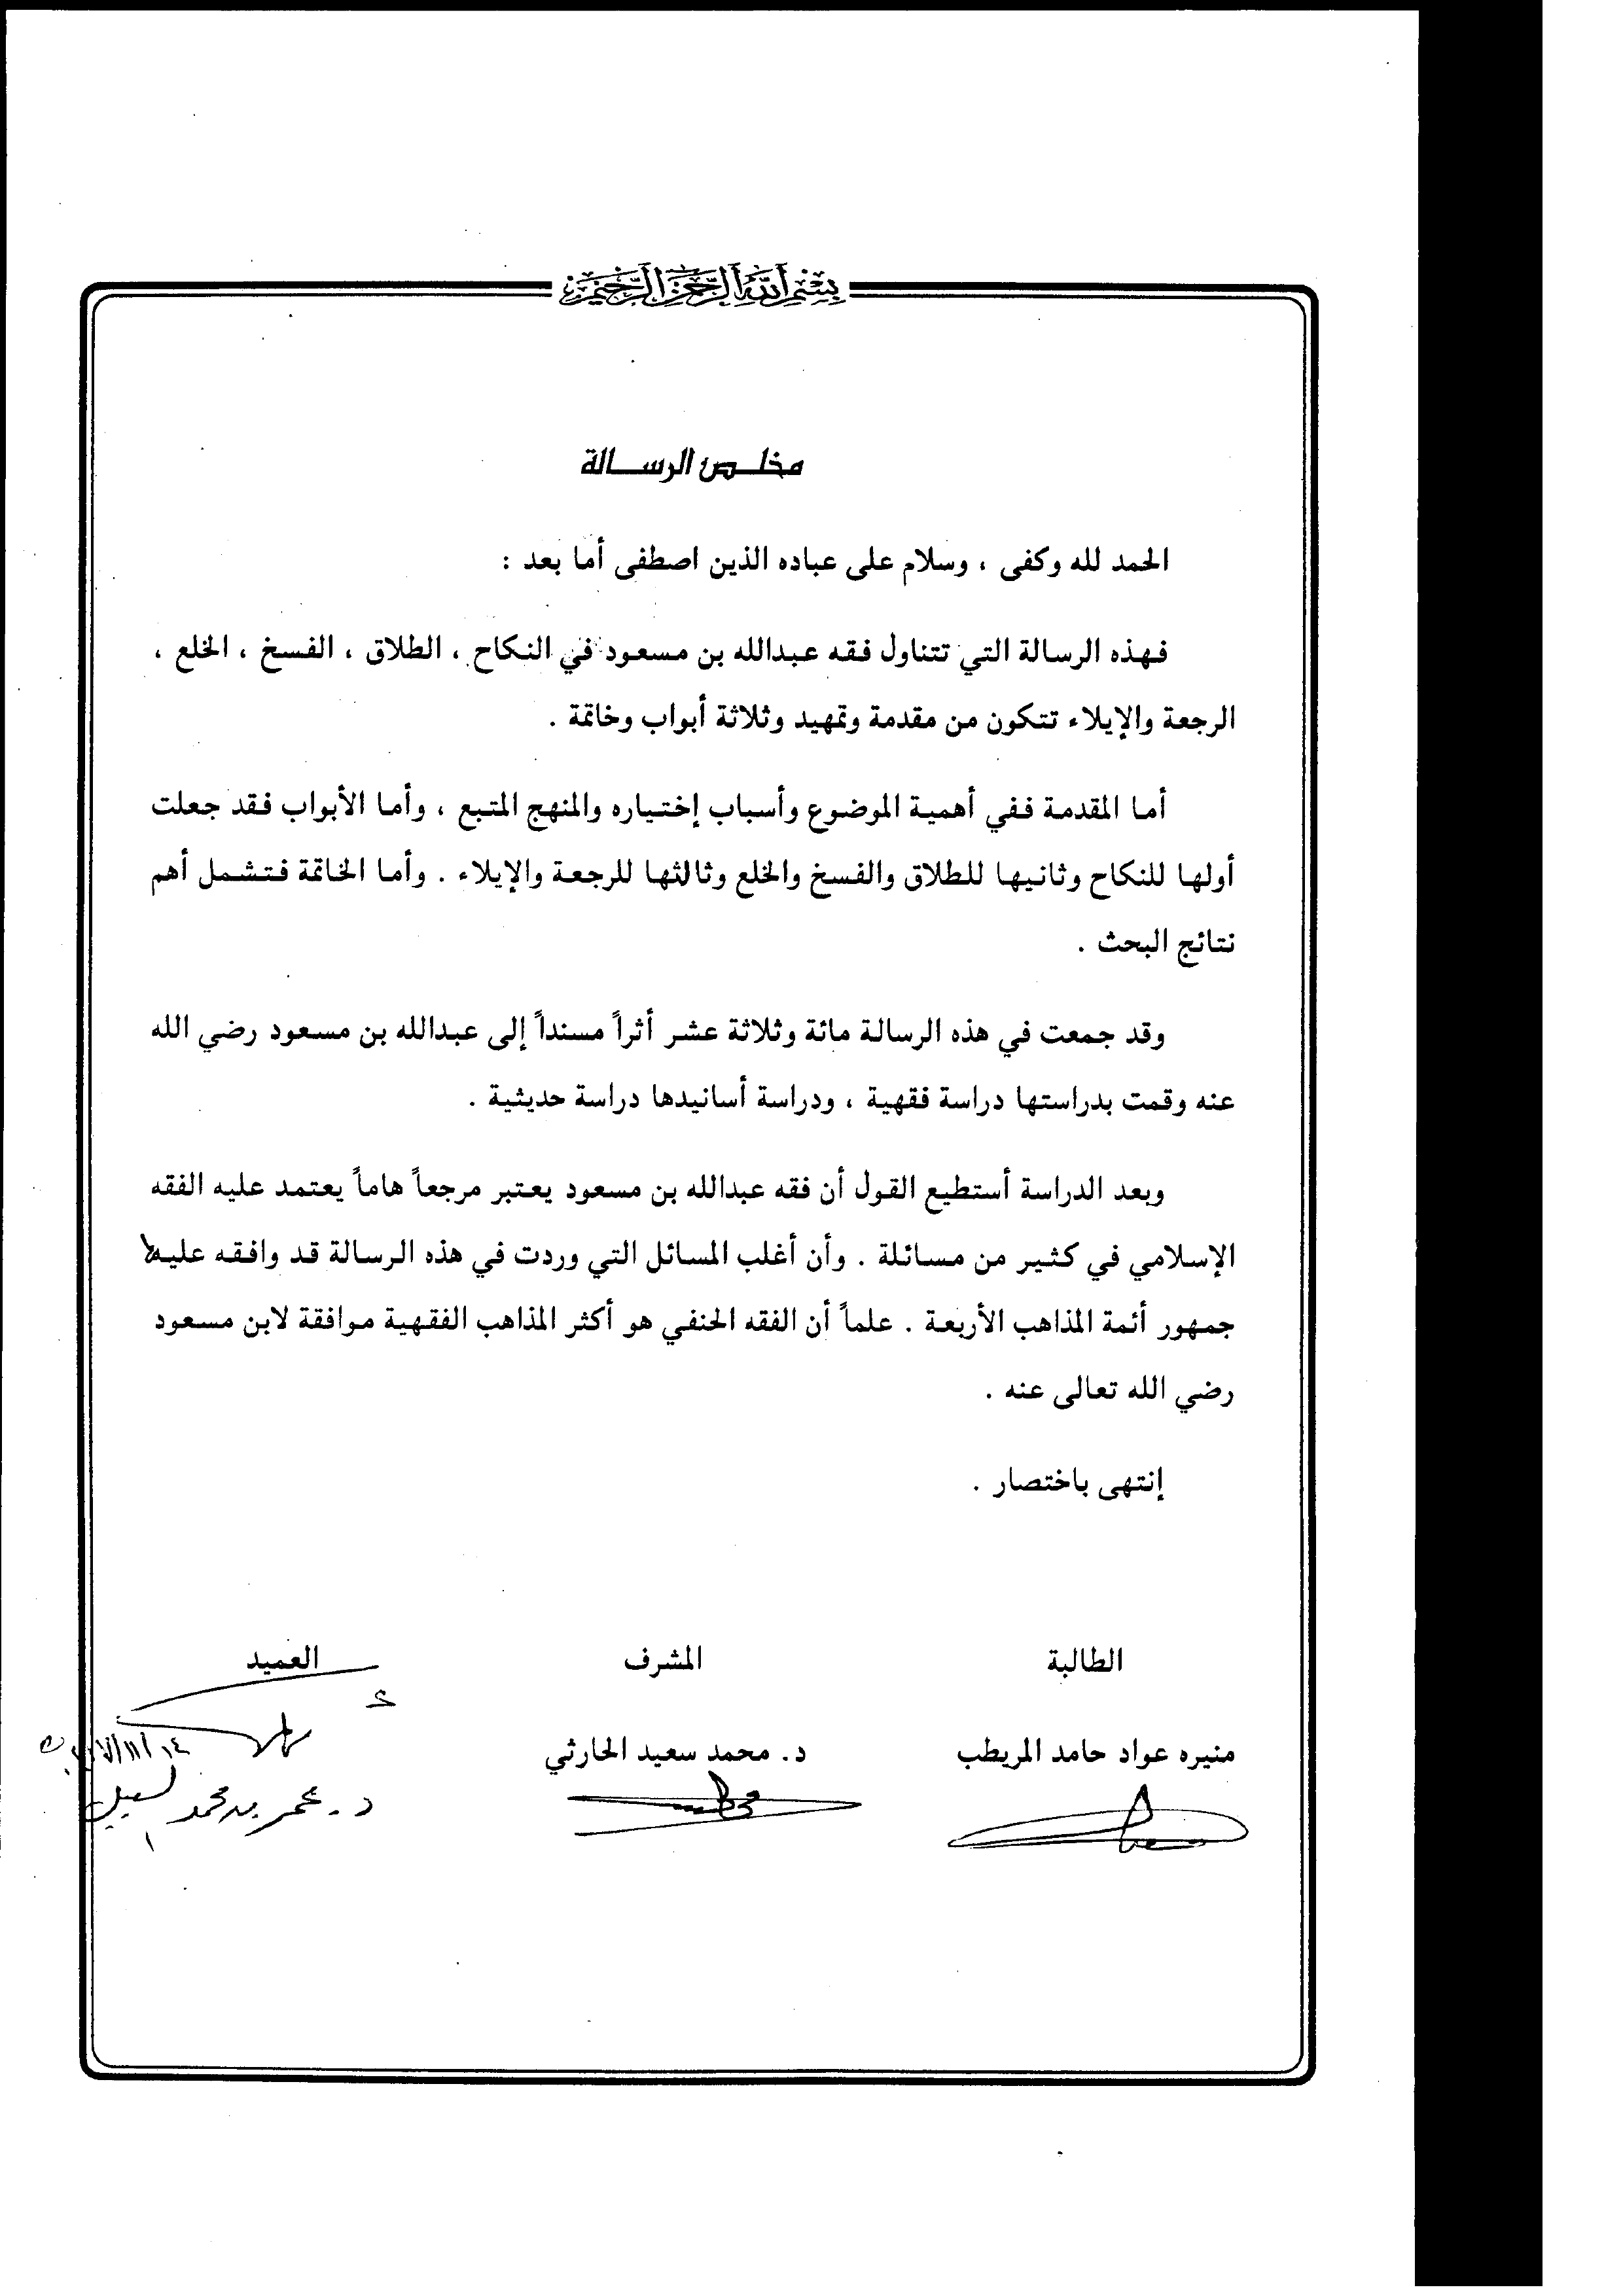 بسم الله الرحمن الرحيم
مخلص الرسالة
الحمد لله وكفى ، وسلام على عباده الذين اصطفى أما بعد :
فهذه الرسالة التي تتناول فقه عبدالله بن مسعود في النكاح ، الطلاق ، الفسخ ، الخلع ،
الرجعة والإيلاء تتكون من مقدمة وتمهيد وثلاثة أبواب وخاتمة .
أما المقدمة ففي أهمية الموضوع وأسباب إختياره والمنهج المتبع ، وأما الأبواب فقد جعلت
أولها للنكاح وثانيها للطلاق والفسخ والخلع وثالثها للرجعة والإيلاء . وأما الخاتمة فتشمل أهم
نتائج البحث .
وقد جمعت في هذه الرسالة مائة وثلاثة عشر أثراً مسنداً إلى عبدالله بن مسعود رضي الله
عنه وقمت بدراستها دراسة فقهية ، ودراسة أسانيدها دراسة حديثية .
وبعد الدراسة أستطيع القول أن فقه عبدالله بن مسعود يعتبر مرجعاً هاماً يعتمد عليه الفقه
الإسلامي في كثير من مسائلة . وأن أغلب المسائل التي وردت في هذه الرسالة قد وافقه عليها
جمهور أئمة المذاهب الأربعة . علماً أن الفقه الحنفي هو أكثر المذاهب الفقهية موافقة لابن مسعود
رضي الله تعالى عنه .
إنتهى باختصار .
الطالبة المشرف العميد
منيره عواد حامد المريطب د. محمد سعيد الحارثي
د. عمر بن محمد السبيل